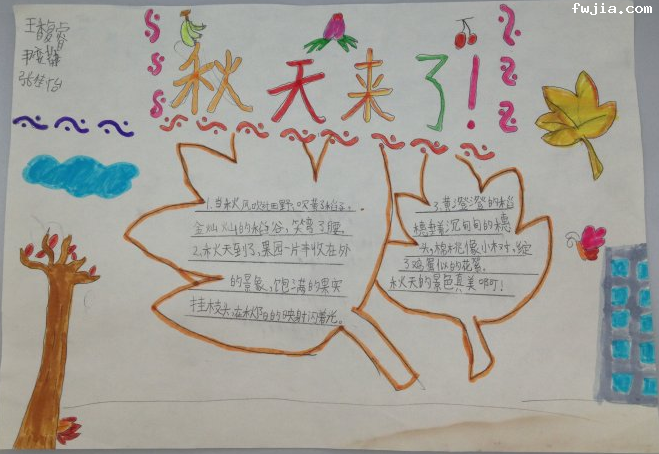 fwjia.com
秋天来了!
王馥睿
张佳怡
1.当秋风吹过田野,吹黄了稻子。
金灿灿的稻谷,笑弯了腰。
2.秋天到了,果园一片丰收在外
的景象,饱满的果实
挂枝头,在秋阳的映射闪着光。
3.黄澄澄的稻
穗垂着沉甸甸的穗
头,棉桃像小树,绽
了鸡蛋似的花蕾。
秋天的景色真美啊!